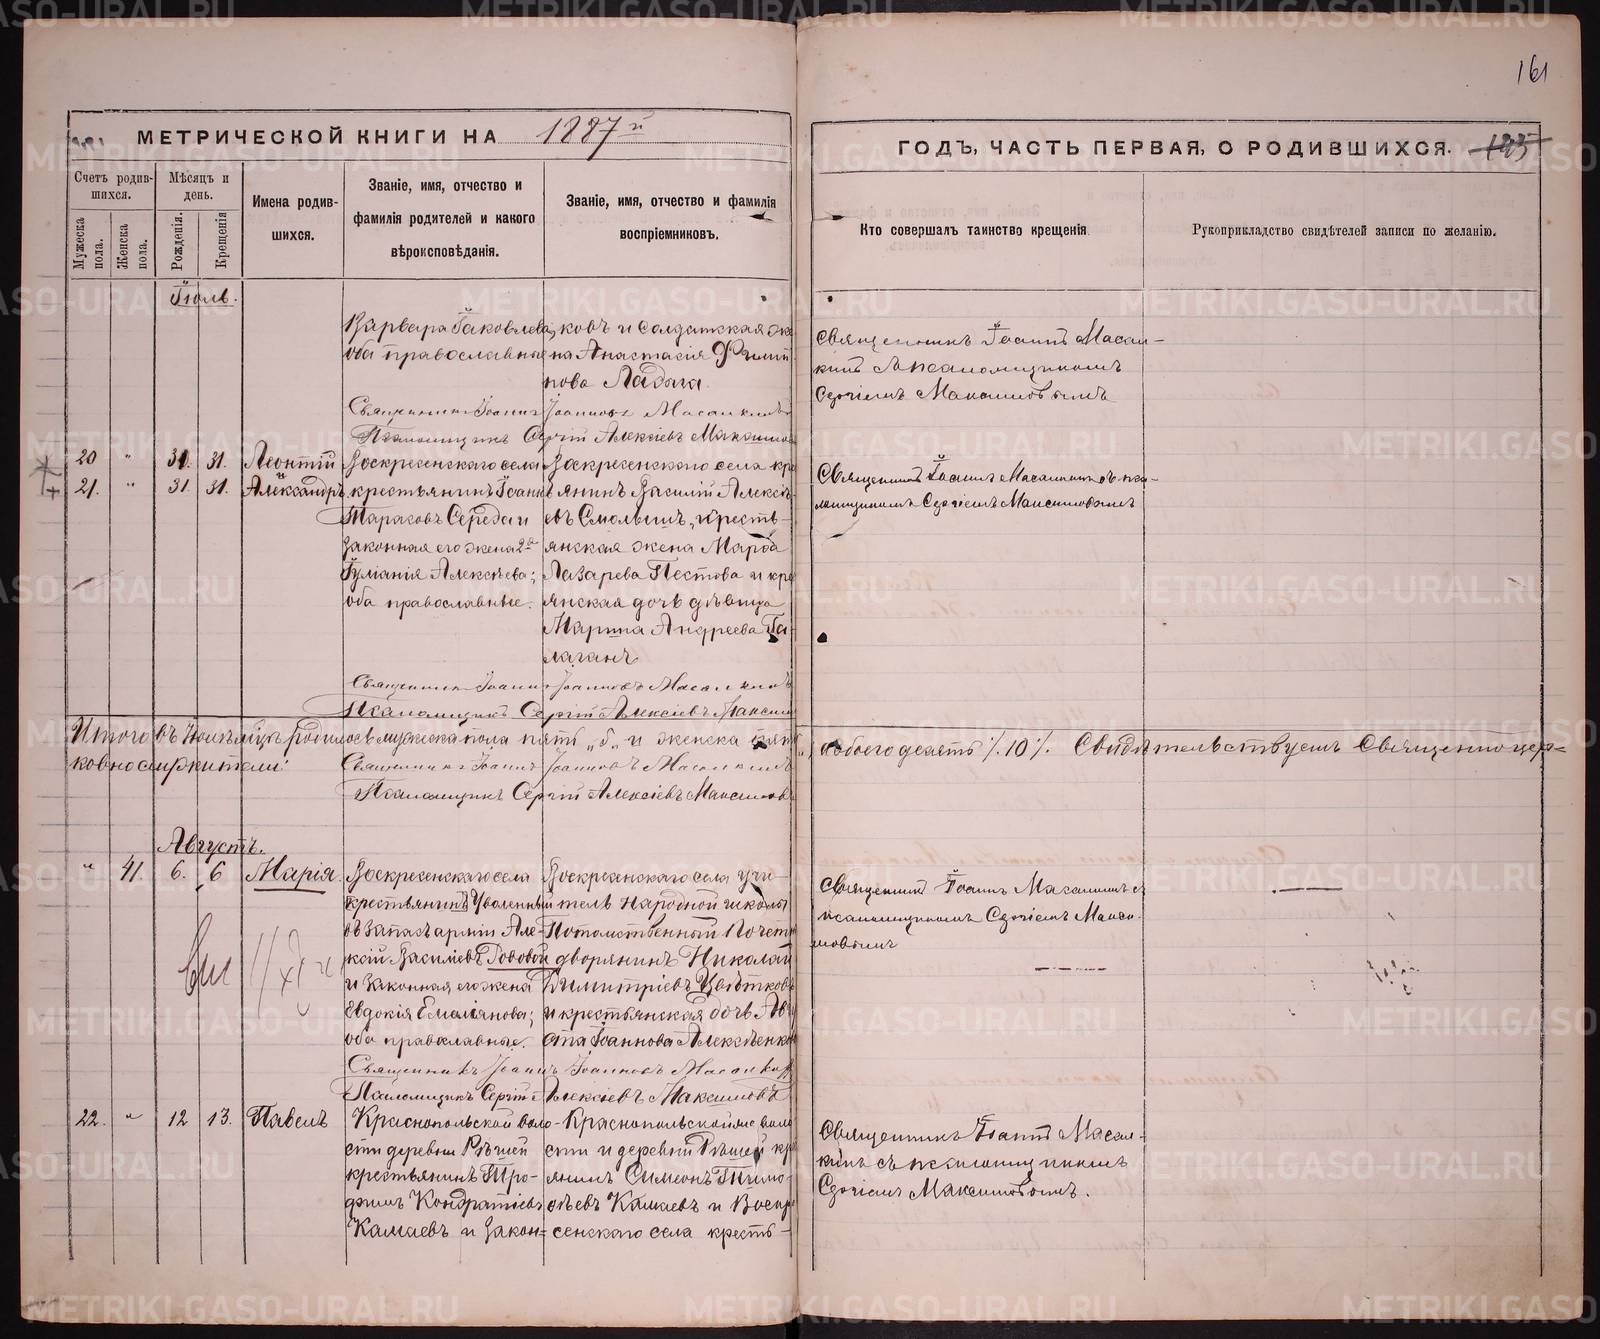 161
МЕТРИЧЕСКОЙ КНИГИ НА 1887й
ГОДЪ, ЧАСТЬ ПЕРВАЯ, О РОДИВШИХСЯ.
Счетъ родив-
шихся.
Мужеска
пола.
Женска
пола.
Мѣсяцъ и
день.
Рожденія.
Крещенія
Имена родив-
шихся.
Званіе, имя, отчество и
фамилія родителей и какого
вѣроксповѣданія.
Званіе, имя, отчество и фамилія
воспріемниковъ.
Кто совершалъ таинство крещенія
Рукоприкладство свидѣтелей записи по желанію.
Іюль.
Варвара Іаковлева,
оба православные
ковъ и солдатская же
на Анастасія Филип
пова Ладага.
Священникъ Іоаннъ Масал-
кинъ
Сергіемъ Максимовымъ
Священникъ Іоаннъ Іоанновъ Масалкинъ
Псаломщикъ Сергій Алексіевъ Максимов
20 " 30. 31. Леонтій
21. " 31. 31. Александръ
Воскресенскаго села
крестьянинъ Іоаннъ
Тарасовъ Середа и
законная его жена 2а
Іуліанія Алексѣева;
оба православные.
Воскресенскаго села кре
янинъ Василій Алексѣ
евъ Смолинъ, кресть-
янская жена Марѳа
Лазарева Пестова и кре
янская дочь дѣвица
Марина Андреева Га-
лаганъ
Священникъ Іоаннъ Масалкинъ съ пса-
ломщикомъ Сергіемъ Максимовымъ
Священникъ Іоаннъ Іоанновъ Масалкинъ
Псаломщикъ Сергій Алексіевъ Максим
Итого въ Іюлѣ мѣсяцѣ родилось мужеска пола пять "5" и женска пять
обоего десять ./.10./. Свидѣтельствуемъ Священноцер=
ковнослужители:
Священникъ Іоаннъ Іоанновъ Масалкинъ
Псаломщикъ Сергій Алексіевъ Максимовъ
Августъ.
" 41. 6. 6 Марія.
Воскресенскаго села
крестьянинъ Уволенный
въ запасъ арміи Але-
ксій Василіевъ Гововой
и законная его жена
Евдокія Емеліянова;
оба православные.
Воскресенскаго села учи-
тель народной школы
Потомственный Почетн
дворянинъ Николай
Димитріевъ Цвѣтковъ
и крестьянская дочь Ав
Іоаннова Алексѣенков
Священникъ Іоаннъ Масалкинъ съ
псаломщикомъ Сергіемъ Макси-
мовымъ
Священникъ Іоаннъ Іоанновъ Масалкинъ
Псаломщикъ Сергій Алексіевъ Максимовъ
22. " 12 13. Павелъ
Краснопольской воло-
сти деревни Рѣшей
крестьянинъ Тро-
фимъ Кондратіевъ
Камаевъ и закон=
Краснопольской же воло
сти и деревни Рѣшей кр
янинъ Симеонъ Тимо-
ѳеевъ Камаевъ и Воскре
сенскаго села кресть-
Священникъ Іоаннъ Масал-
кинъ съ псаломщикомъ
Сергіемъ Максимовымъ.
METRIKI.GASO-URAL.RU